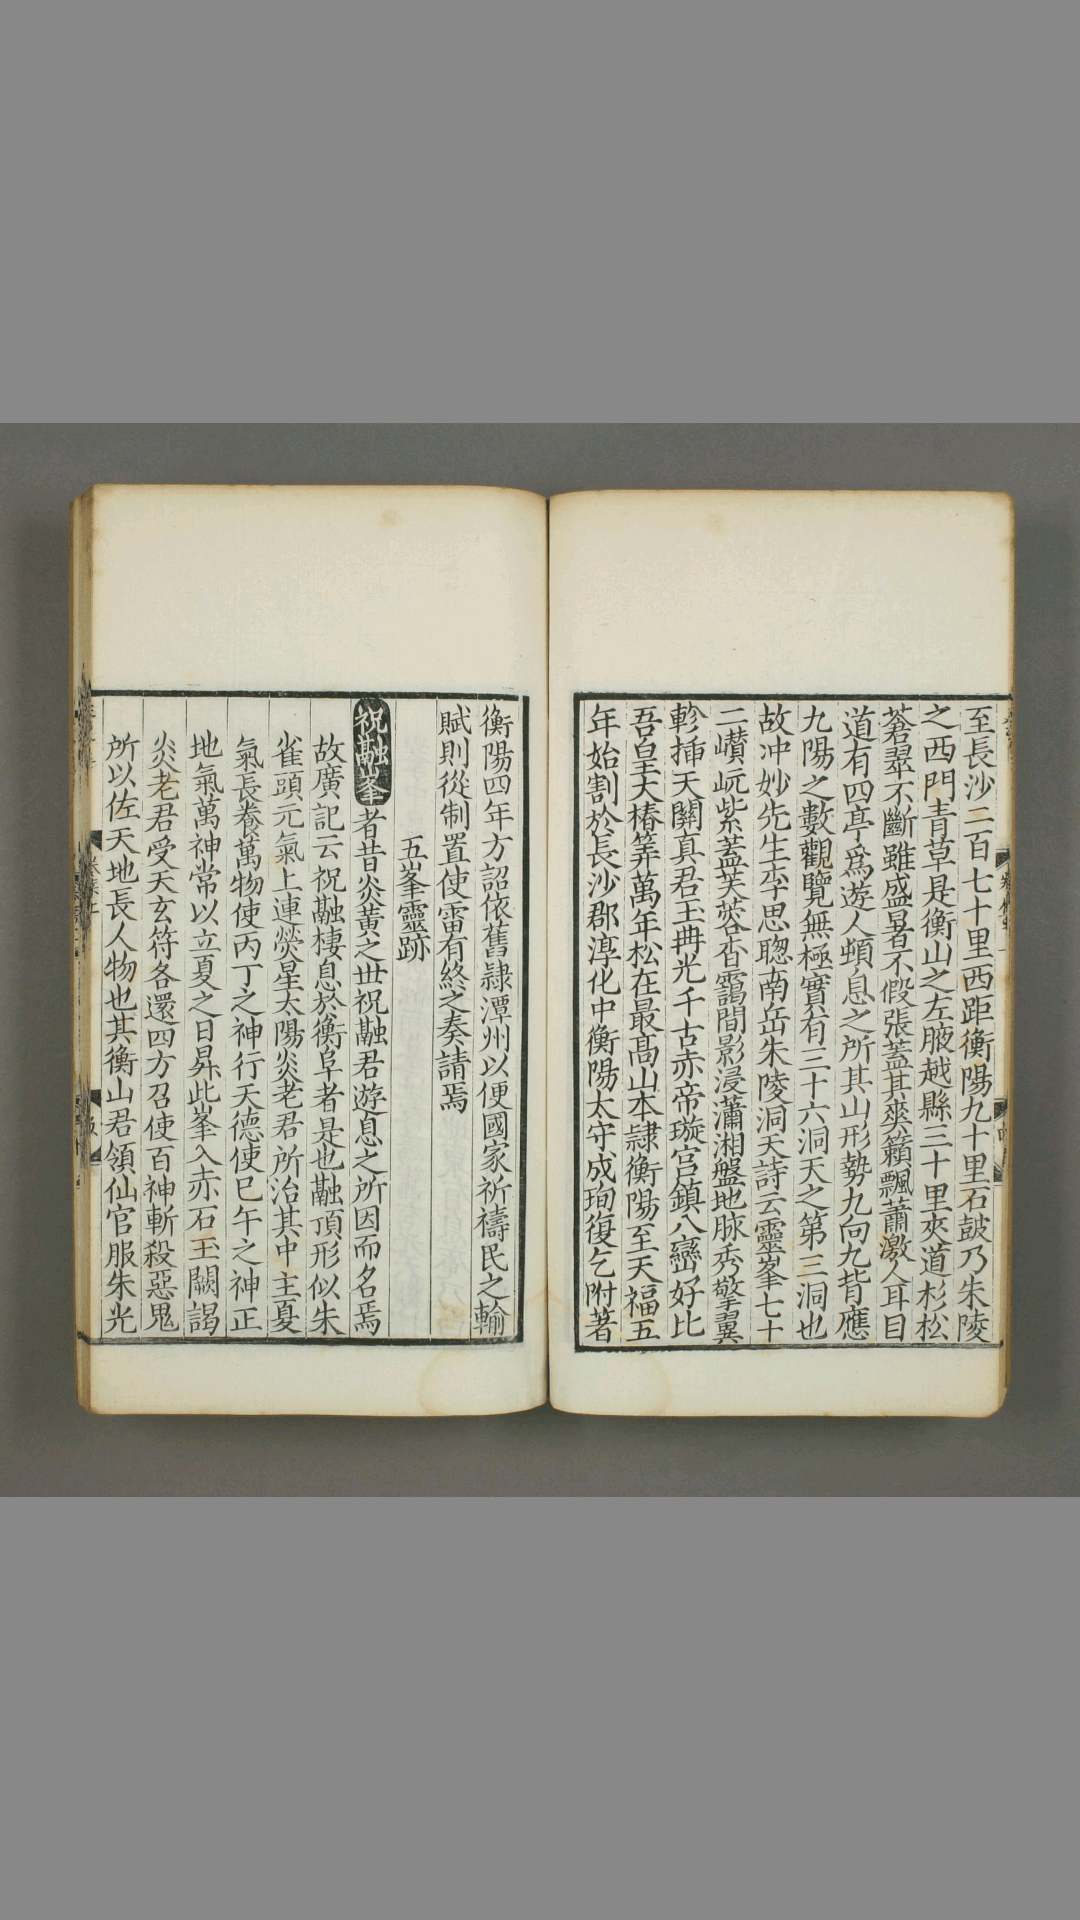 至長沙二百七十里西距衡陽九十里石鼓乃朱陵
之西門青草是衡山之左腋越縣三十里夾道杉松
蒼翠不斷雖盛暑不假張蓋其爽籟飄蕭激人耳目
道有四亭爲遊人頓息之所其山形勢九向九背應
九陽之數觀覽無極實有三十六洞天之第三洞也
故冲妙先生李思聰南岳朱陵洞天詩云靈峯七十
二巑岏紫蓋芙蓉杳靄間影浸瀟湘盤地脉秀擎翼
軫揷天關真君玉冊光千古赤帝璇宮鎮八巒好比
吾皇大椿筭萬年松在最髙山本隸衡陽至天福五
年始割於長沙郡淳化中衡陽太守成珣復乞附著
衡陽四年方詔依舊隷潭州以便國家祈禱民之輸
賦則從制置使雷有終之奏請焉
五峯靈跡
祝融峯者昔炎黃之世祝融君遊息之所因而名焉
故廣記云祝融棲息於衡阜者是也融頂形似朱
雀頭元氣上連熒星太陽炎老君所治其中主夏
氣長養萬物使丙丁之神行天德使巳午之神正
地氣萬神常以立夏之日昇此峯入赤石玉闕謁
炎老君受天玄符各還四方召使百神斬殺惡鬼
所以佐天地長人物也其衡山君領仙官服朱光